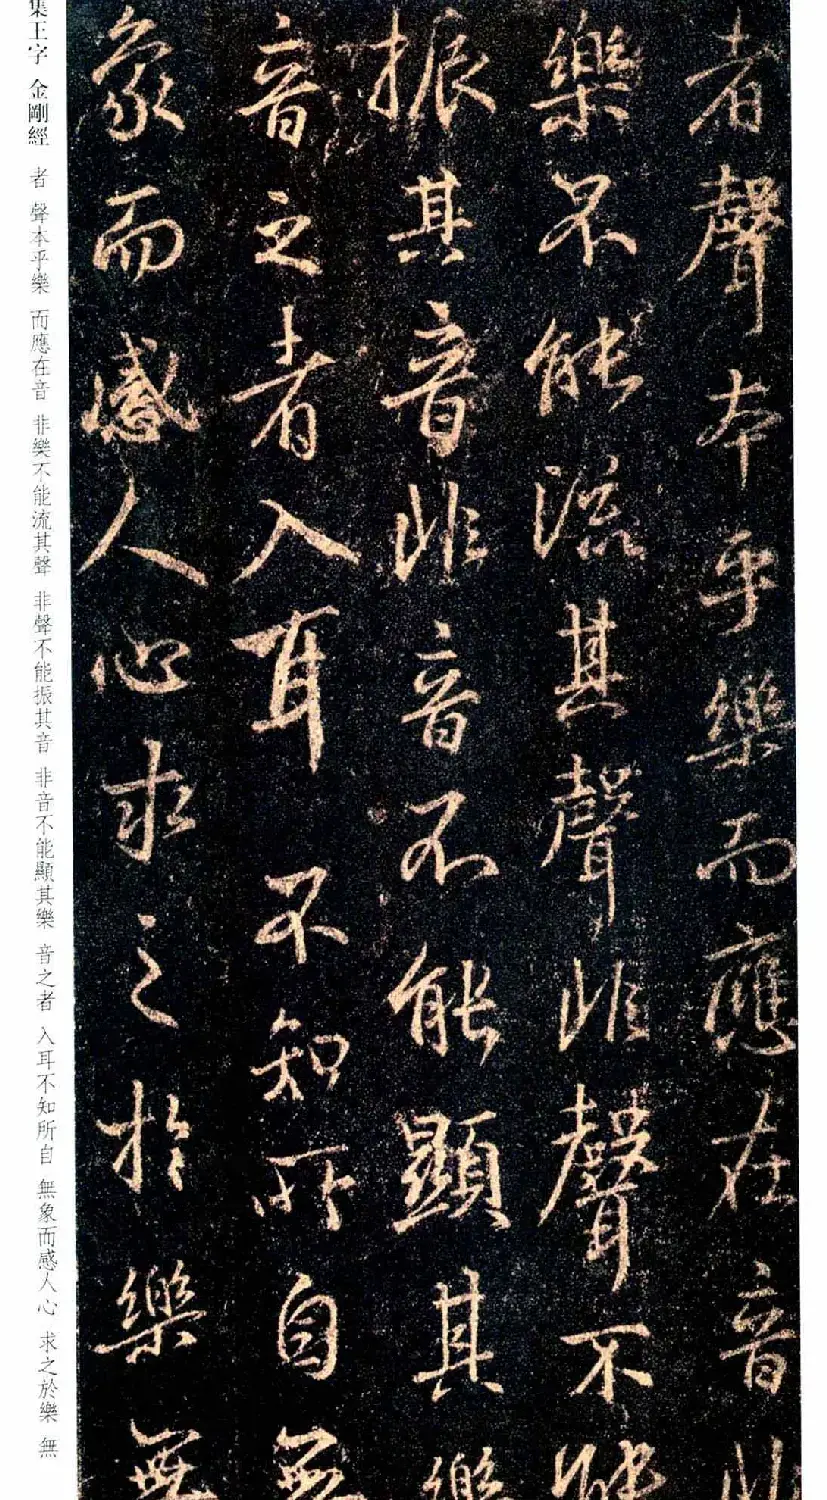 者聲本乎樂而應在音非
樂不能流其聲非聲不能
振其音非音不能顯其樂
音之者入耳不知所自無
象而感人心求之於樂無
集王字 金剛經 者 聲本乎樂 而應在音 非樂不能流其聲 非聲不能振其音 非音不能顯其樂 音之者 入耳不知所自 無象而感人心 求之於樂 無